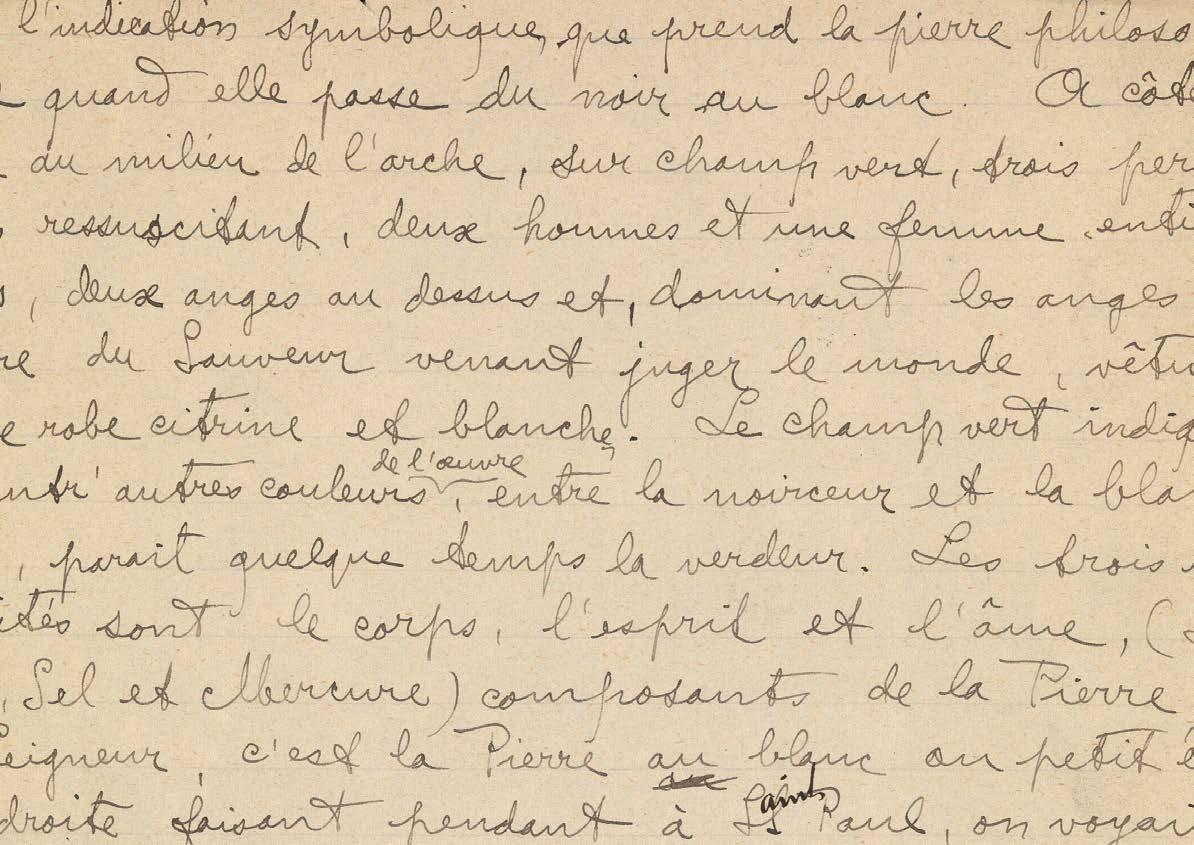 l'indication symbolique, que prend la pierre philoso
quand elle passe du noir au blanc. A côté
au milieu de l'arche, sur champ vert, trois per
ressuscitant, deux hommes et une femme enti
, deux anges au dessus et, dominant les anges
re du Sauveur venant juger le monde, vêtu
e robe citrine et blanche. Le champ vert indiq
de l'œuvre
ntr'autres couleurs, entre la noirceur et la bla
, parait quelque temps la verdeur. Les trois
ités sont le corps, l'esprit et l'âme, (
, Sel et Mercure) composants de la Pierre
eigneur, c'est la Pierre au blanc ou petit é
droite faisant pendant à Saint Paul, on voyait